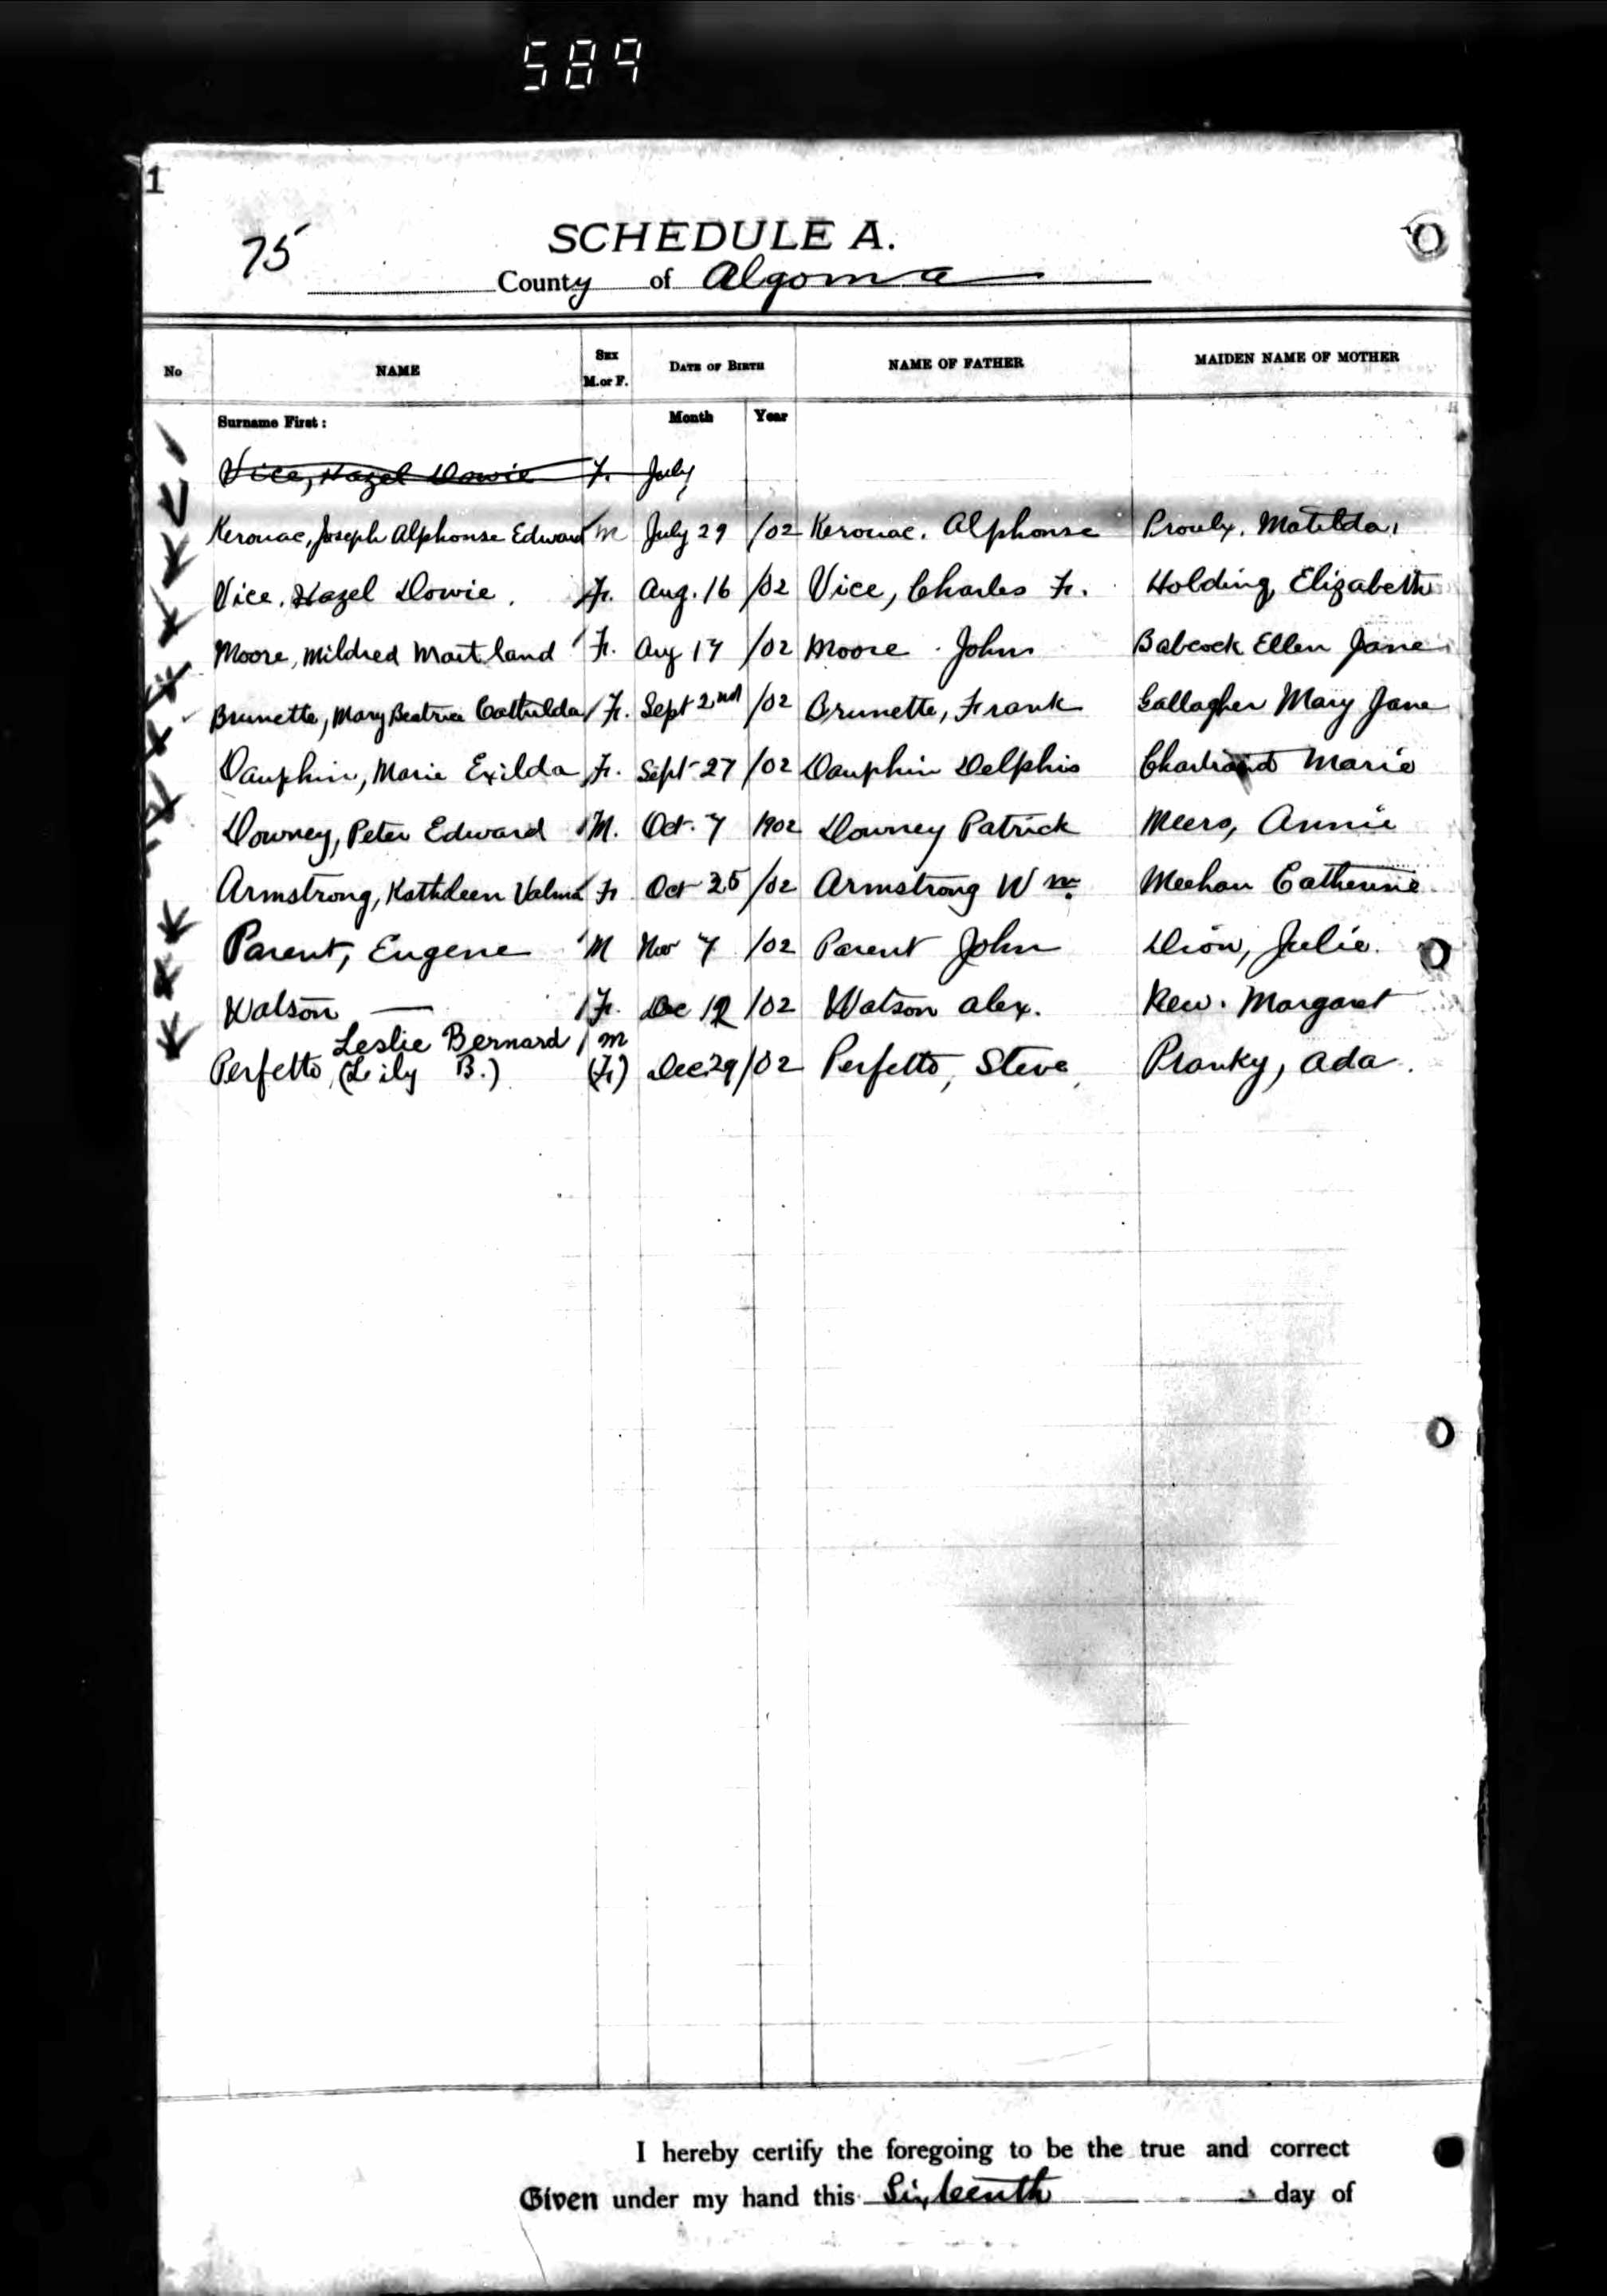 589
1
75
SCHEDULE A.
County of Algoma
No NAME SEX M. or F. DATE OF BIRTH NAME OF FATHER MAIDEN NAME OF MOTHER
Surname First: Month Year
Vice, Hazel Dowie F. July
Kerouac, Joseph Alphonse Edward M July 29 /02 Kerouac. Alphonse Proulx. Matilda
Vice. Hazel Dowie. F. Aug. 16 /02 Vice, Charles F. Holding, Elizabeth
Moore, Mildred Maitland F. Aug 17 /02 Moore John Babcock Ellen Jane
Brunette, Mary Beatrice F. Sept 2nd /02 Brunette, Frank Gallagher Mary Jane
Dauphin, Marie Exilda F. Sept 27 /02 Dauphin Delphis Chartrand Marie
Downey, Peter Edward M. Oct. 7 1902 Downey Patrick Meers, Annie
Armstrong, Kathleen Valma F Oct 25 /02 Armstrong Wm. Meehan Catherine
Parent, Eugene M Nov 7 /02 Parent John Dion, Julie.
Watson — F. Dec 12 /02 Watson Alex. Rew. Margaret
Leslie Bernard M
Perfetto (Lily B.) (F) Dec 29 /02 Perfetto, Steve Pranky, Ada.
I hereby certify the foregoing to be the true and correct
Given under my hand this Sixteenth day of